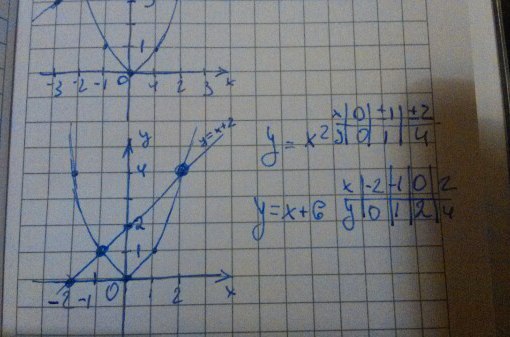 3
1
-3 -2 -1 0 1 2 3 x
y
y=x+2
4
2
1
-2 -1 0 1 2 x
y = x² x | 0 | ±1 | ±2
y | 0 | 1 | 4
y=x+6 x | -2 | -1 | 0 | 2
y | 0 | 1 | 2 | 4